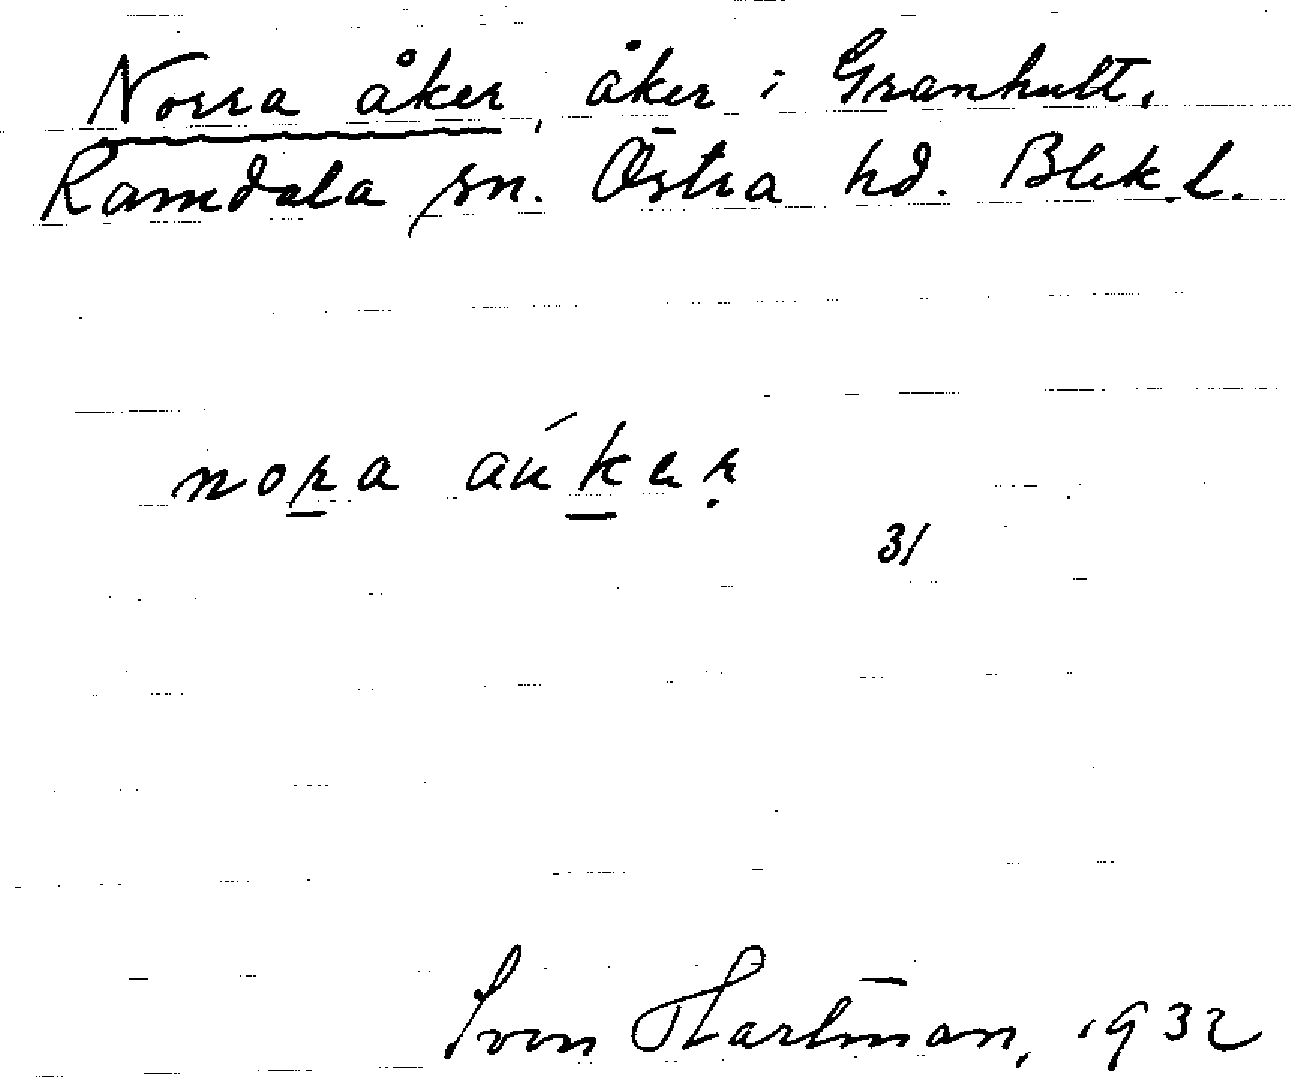 Norra åker, åker i Granhult,
Ramdala sn. Östra hd. Blek. l.
nora aúkar
31
Sven Hartman, 1932